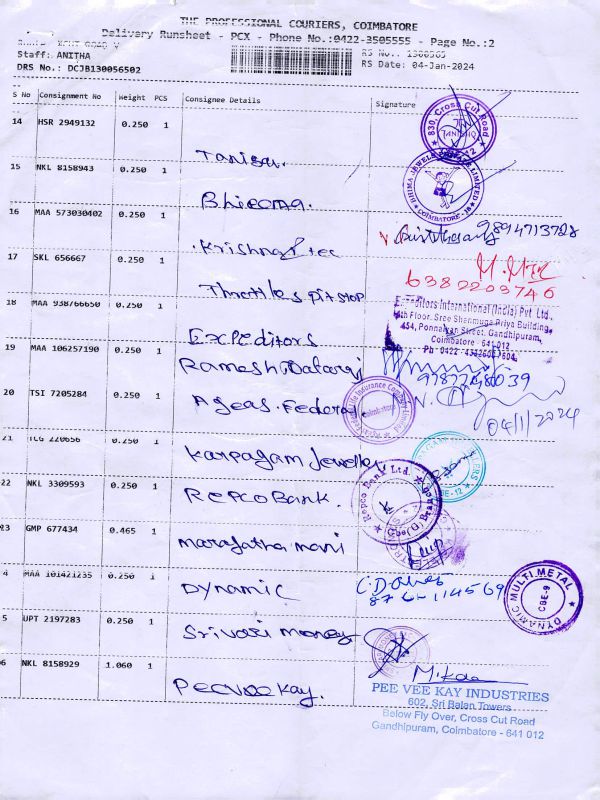 THE PROFESSIONAL COURIERS, COIMBATORE
Delivery Runsheet - PCX - Phone No.:0422-3505555 - Page No.:2
Staff: ANITHA
DRS No.: DCJB130056502
RS No.: 1300565
RS Date: 04-Jan-2024
S No Consignment No Weight PCS Consignee Details Signature
14 HSR 2949132 0.250 1
830, Cross Cut Road
TANISHQ
15 NKL 8158943 0.250 1
Bheema.
BHIMA JEWELS LIMITED
COIMBATORE
16 MAA 573030402 0.250 1
Krishna
9894713728
17 SKL 656667 0.250 1
Throttles pitstop
6382203746
18 MAA 938766650 0.250 1
Expeditors
Expeditors International (India) Pvt Ltd.,
4th Floor, Sree Shanmuga Priya Building,
454, Ponnaiyan Street, Gandhipuram,
Coimbatore - 641 012
19 MAA 106257190 1
Ramesh
20 TSI 7205284 0.250 1
Ageas. Federal
Life Insurance Company
Coimbatore
04/1/2024
21 TCG 220656 0.250 1
Karpagam Jewellers
22 NKL 3309593 0.250 1
Repco Bank.
Repco Bank Ltd.
23 GMP 677434 0.465 1
maragatha mani
MAA 101421235 0.250 1
Dynamic
DYNAMIC MULTI METAL
CBE-9
5 UPT 2197283 0.250 1
Srivari money
6 NKL 8158929 1.060 1
Peeveekay.
PEE VEE KAY INDUSTRIES
602, Sri Balan Towers
Below Fly Over, Cross Cut Road
Gandhipuram, Coimbatore - 641 012